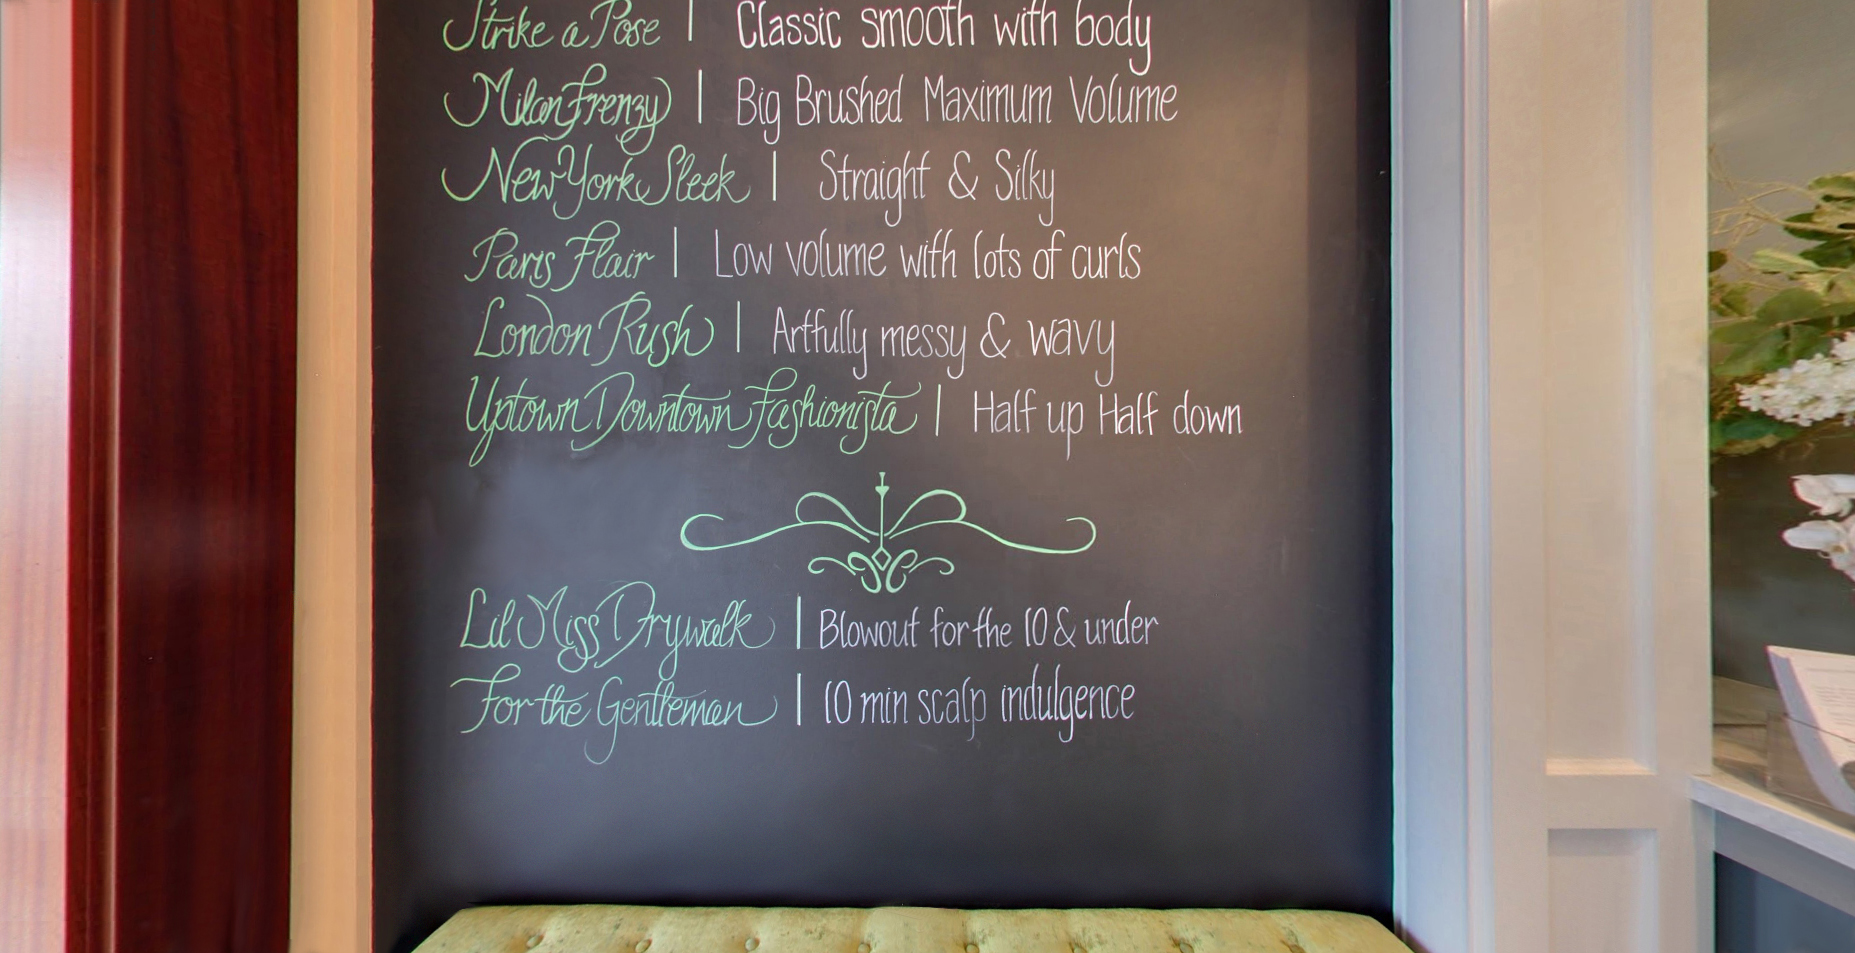 Strike a Pose | Classic smooth with body
Milan Frenzy | Big Brushed Maximum Volume
New York Sleek | Straight & Silky
Paris Flair | Low volume with lots of curls
London Rush | Artfully messy & wavy
Uptown Downtown Fashionista | Half up Half down
Lil Miss Drywalk | Blowout for the 10 & under
For the Gentleman | 10 min scalp indulgence